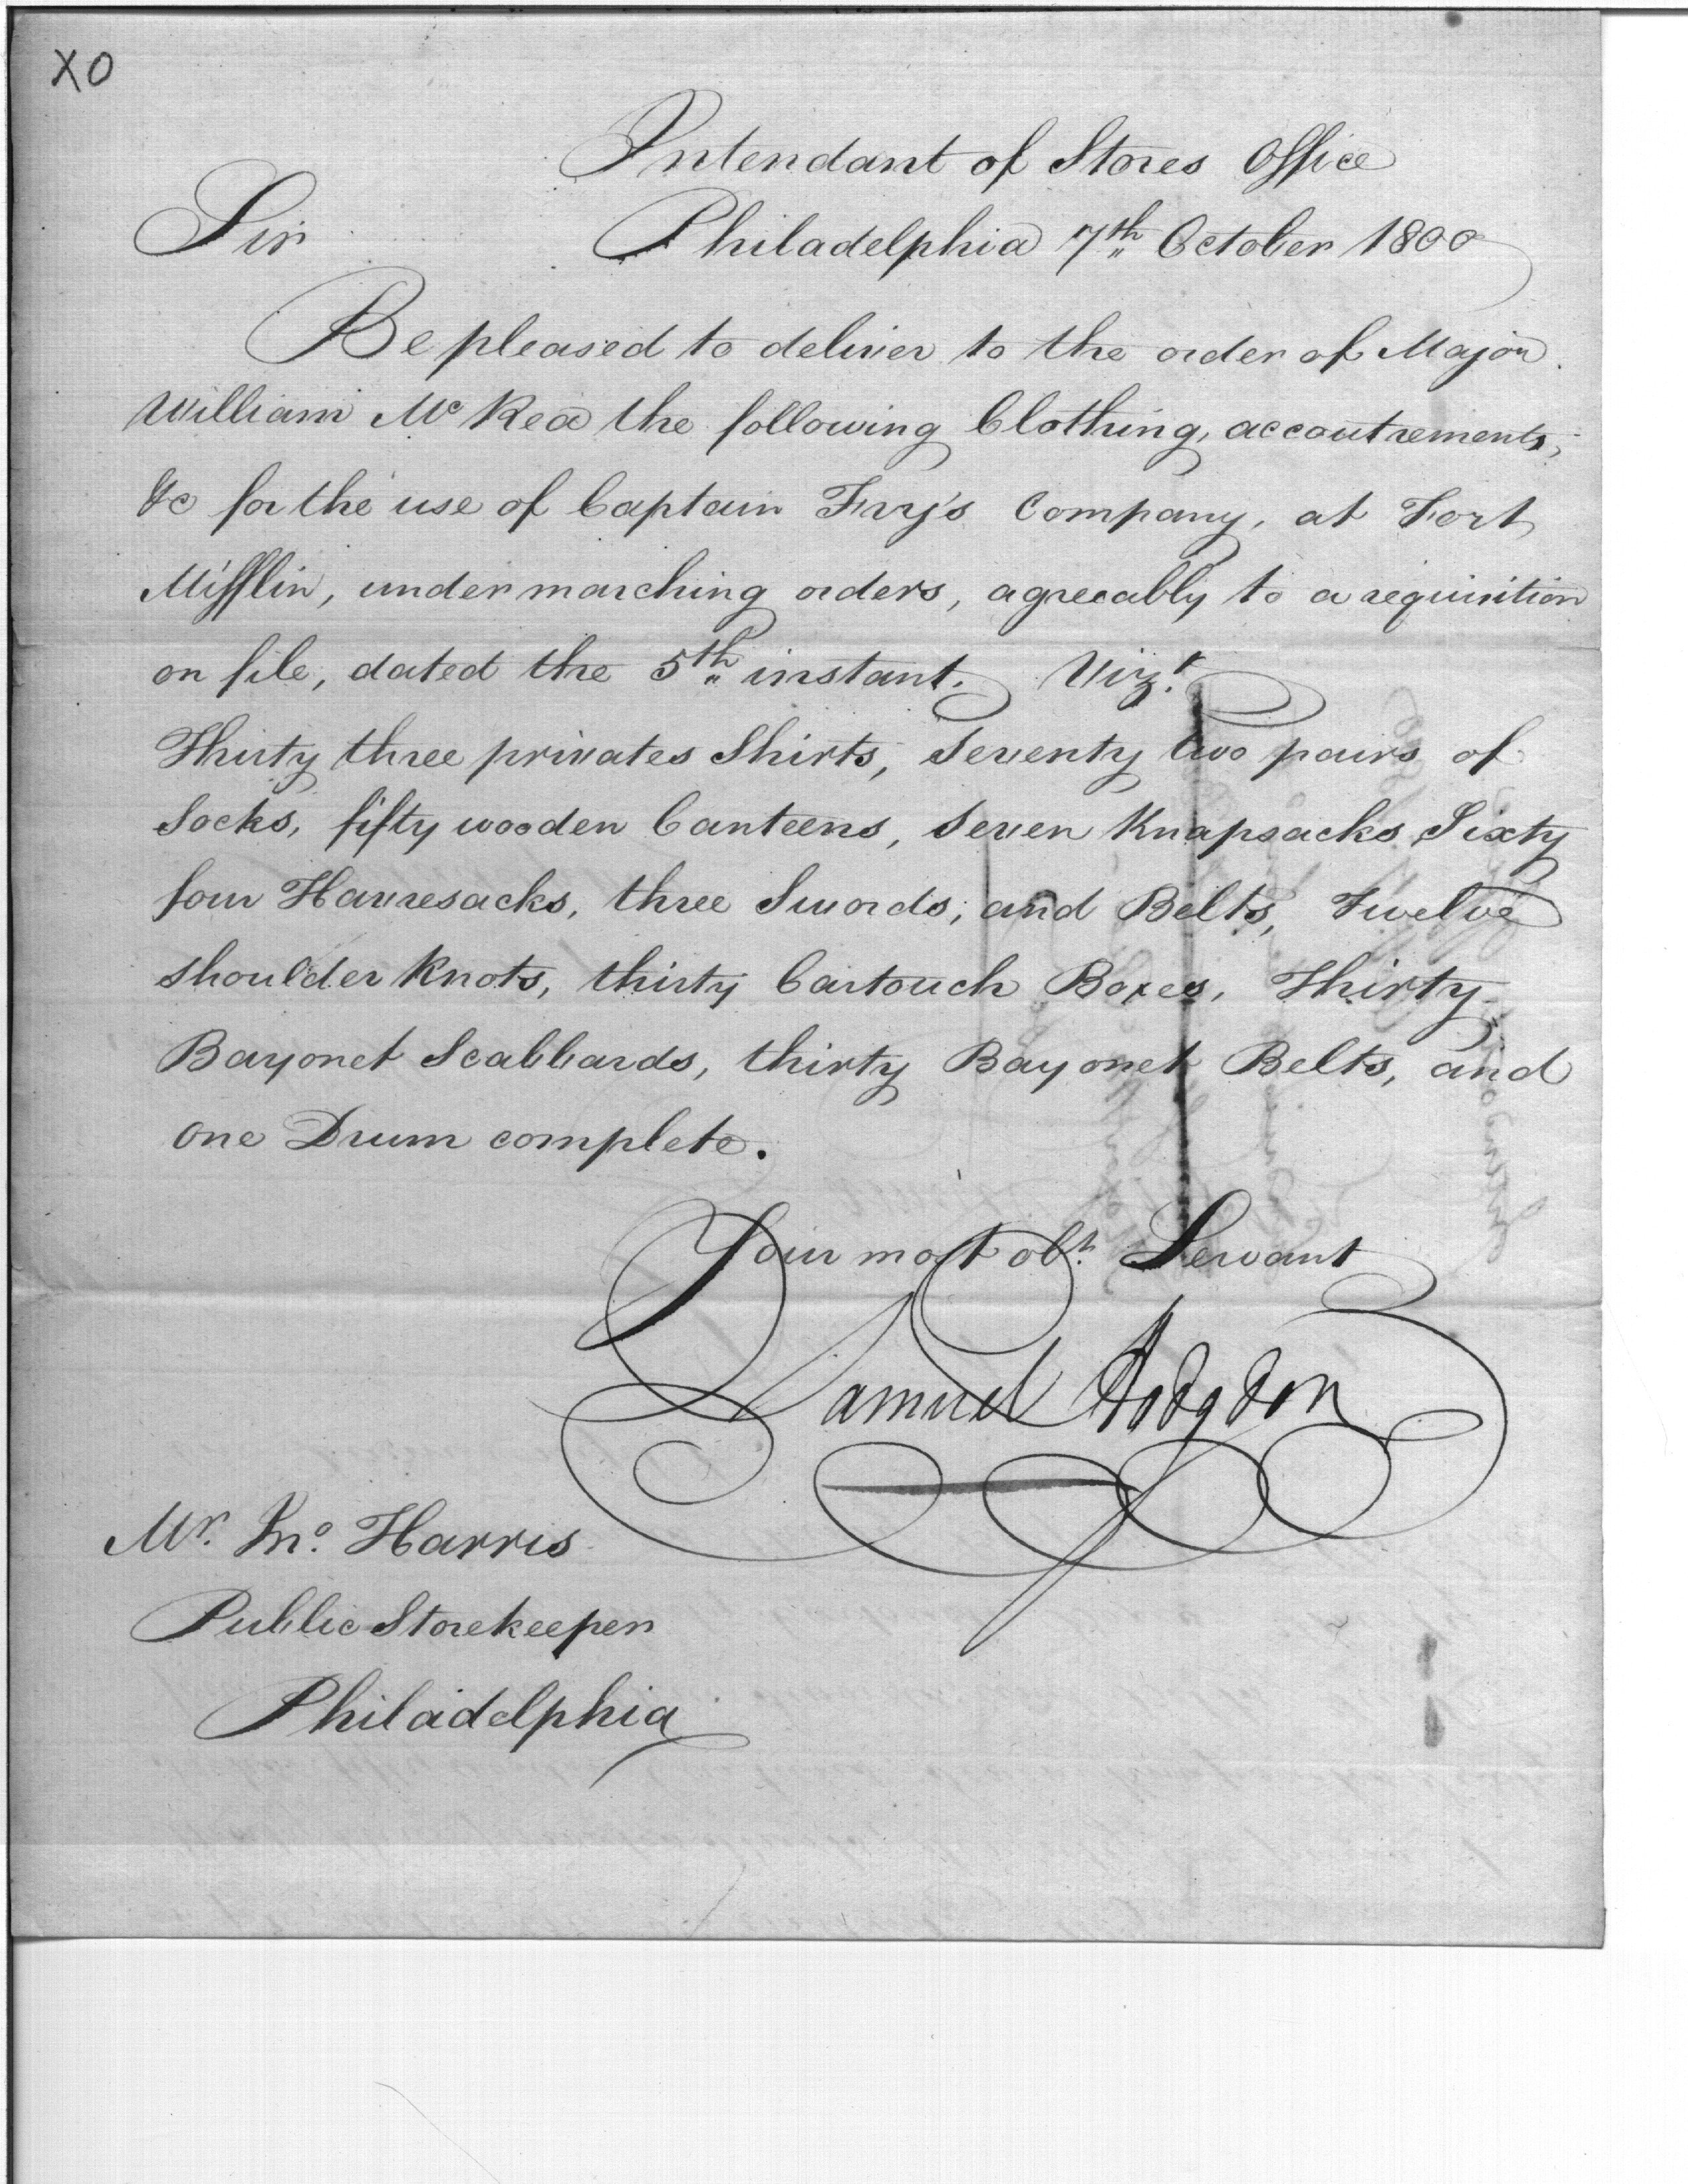 XO
Intendant of Stores Office
Sir Philadelphia 7th October 1800
Be pleased to deliver to the order of Major
William Mc Rea the following Clothing, accoutrements,
&c for the use of Captain Fry's Company, at Fort
Mifflin, under marching orders, agreeably to a requisition
on file, dated the 5th instant. Vizt.
Thirty three privates Shirts, Seventy two pairs of
Socks, fifty wooden Canteens, Seven Knapsacks Sixty
four Havresacks, three Swords, and Belts, Twelve
shoulder Knots, thirty Cartouch Boxes, Thirty
Bayonet Scabbards, thirty Bayonet Belts, and
one Drum complete.
Your most obt. Servant
Samuel Hodgdon
Mr. Jno. Harris
Public Storekeeper
Philadelphia